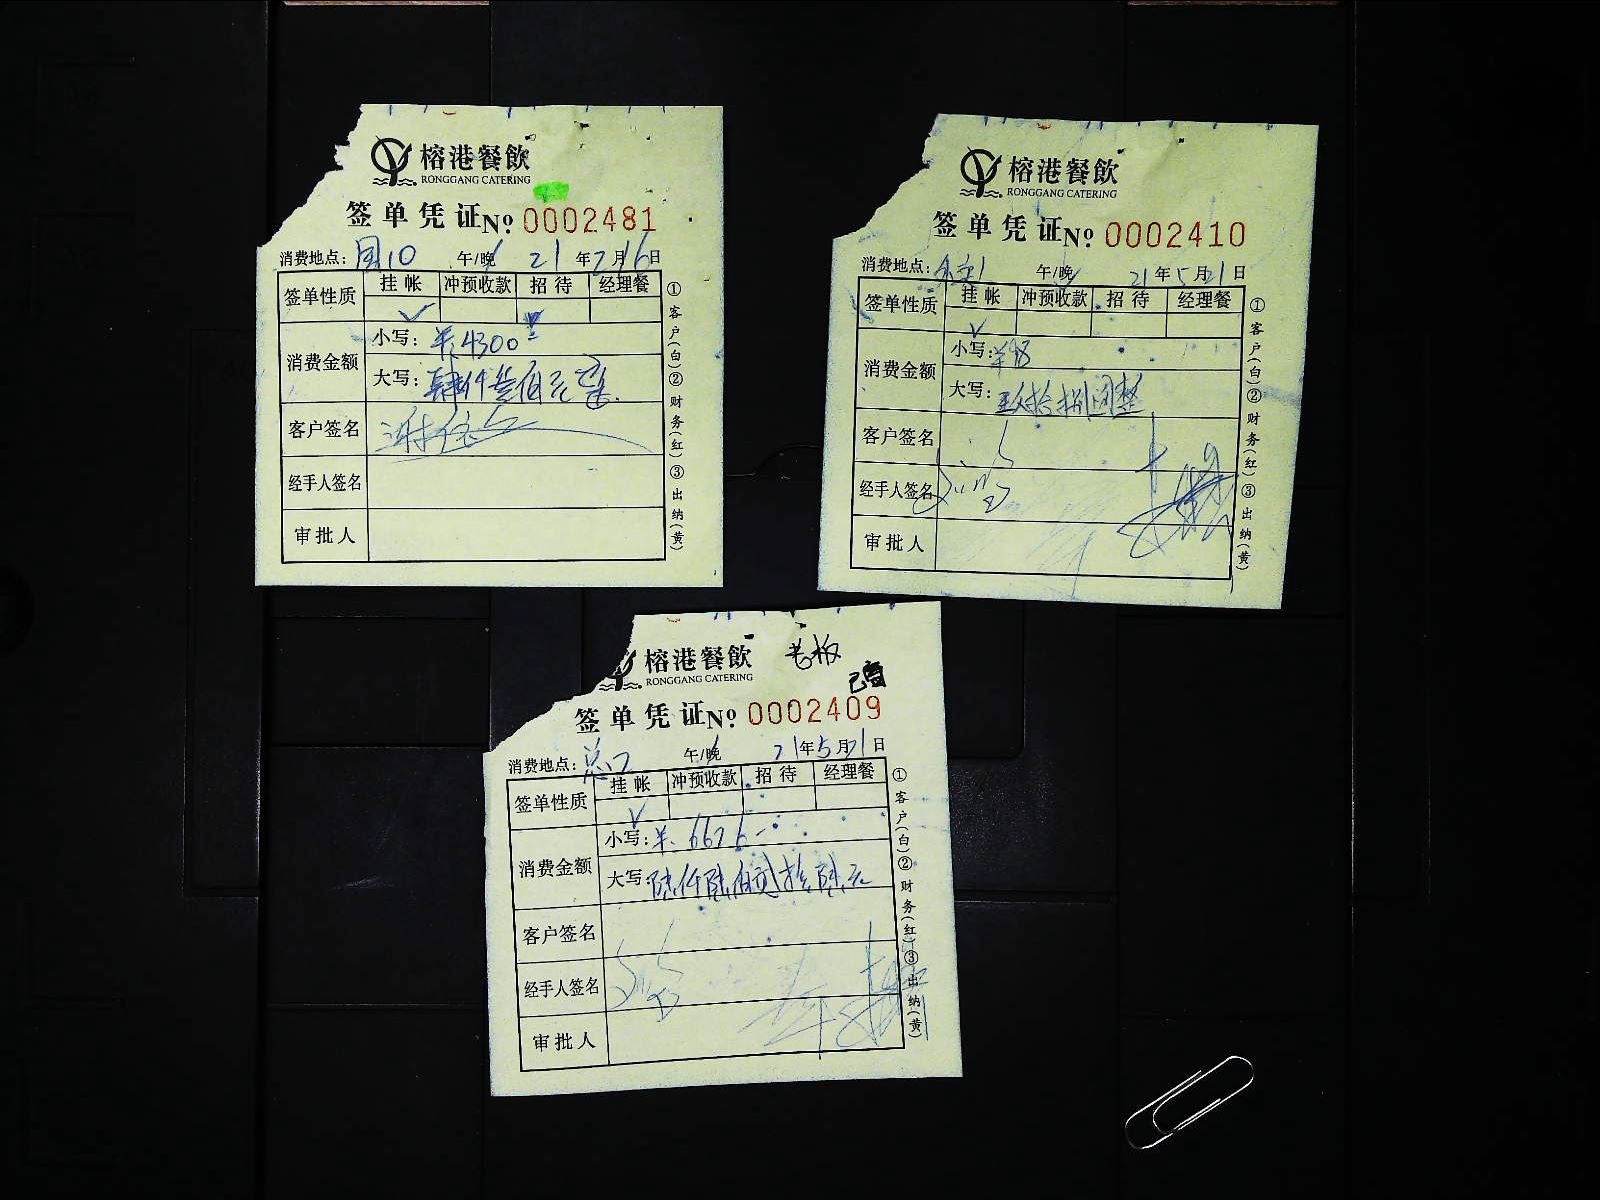 榕港餐飲
RONGGANG CATERING
签单凭证 No. 0002481
消费地点: 午/晚 21年2月16日
签单性质 挂帐 冲预收款 招待 经理餐
消费金额
小写: ¥4300
大写: 肆仟叁佰元整
客户签名
经手人签名
审批人
①客户(白)②财务(红)③出纳(黄)
榕港餐飲
RONGGANG CATERING
签单凭证 No. 0002410
消费地点: 午/晚 21年5月21日
签单性质 挂帐 冲预收款 招待 经理餐
消费金额
小写: ¥98
大写: 玖拾捌圆整
客户签名
经手人签名
审批人
①客户(白)②财务(红)③出纳(黄)
老板
榕港餐飲
RONGGANG CATERING
签单凭证 No. 0002409
消费地点: 午/晚 21年5月21日
签单性质 挂帐 冲预收款 招待 经理餐
消费金额
小写: ¥
大写: 陆仟陆佰 拾陆元
客户签名
经手人签名
审批人
①客户(白)②财务(红)③出纳(黄)